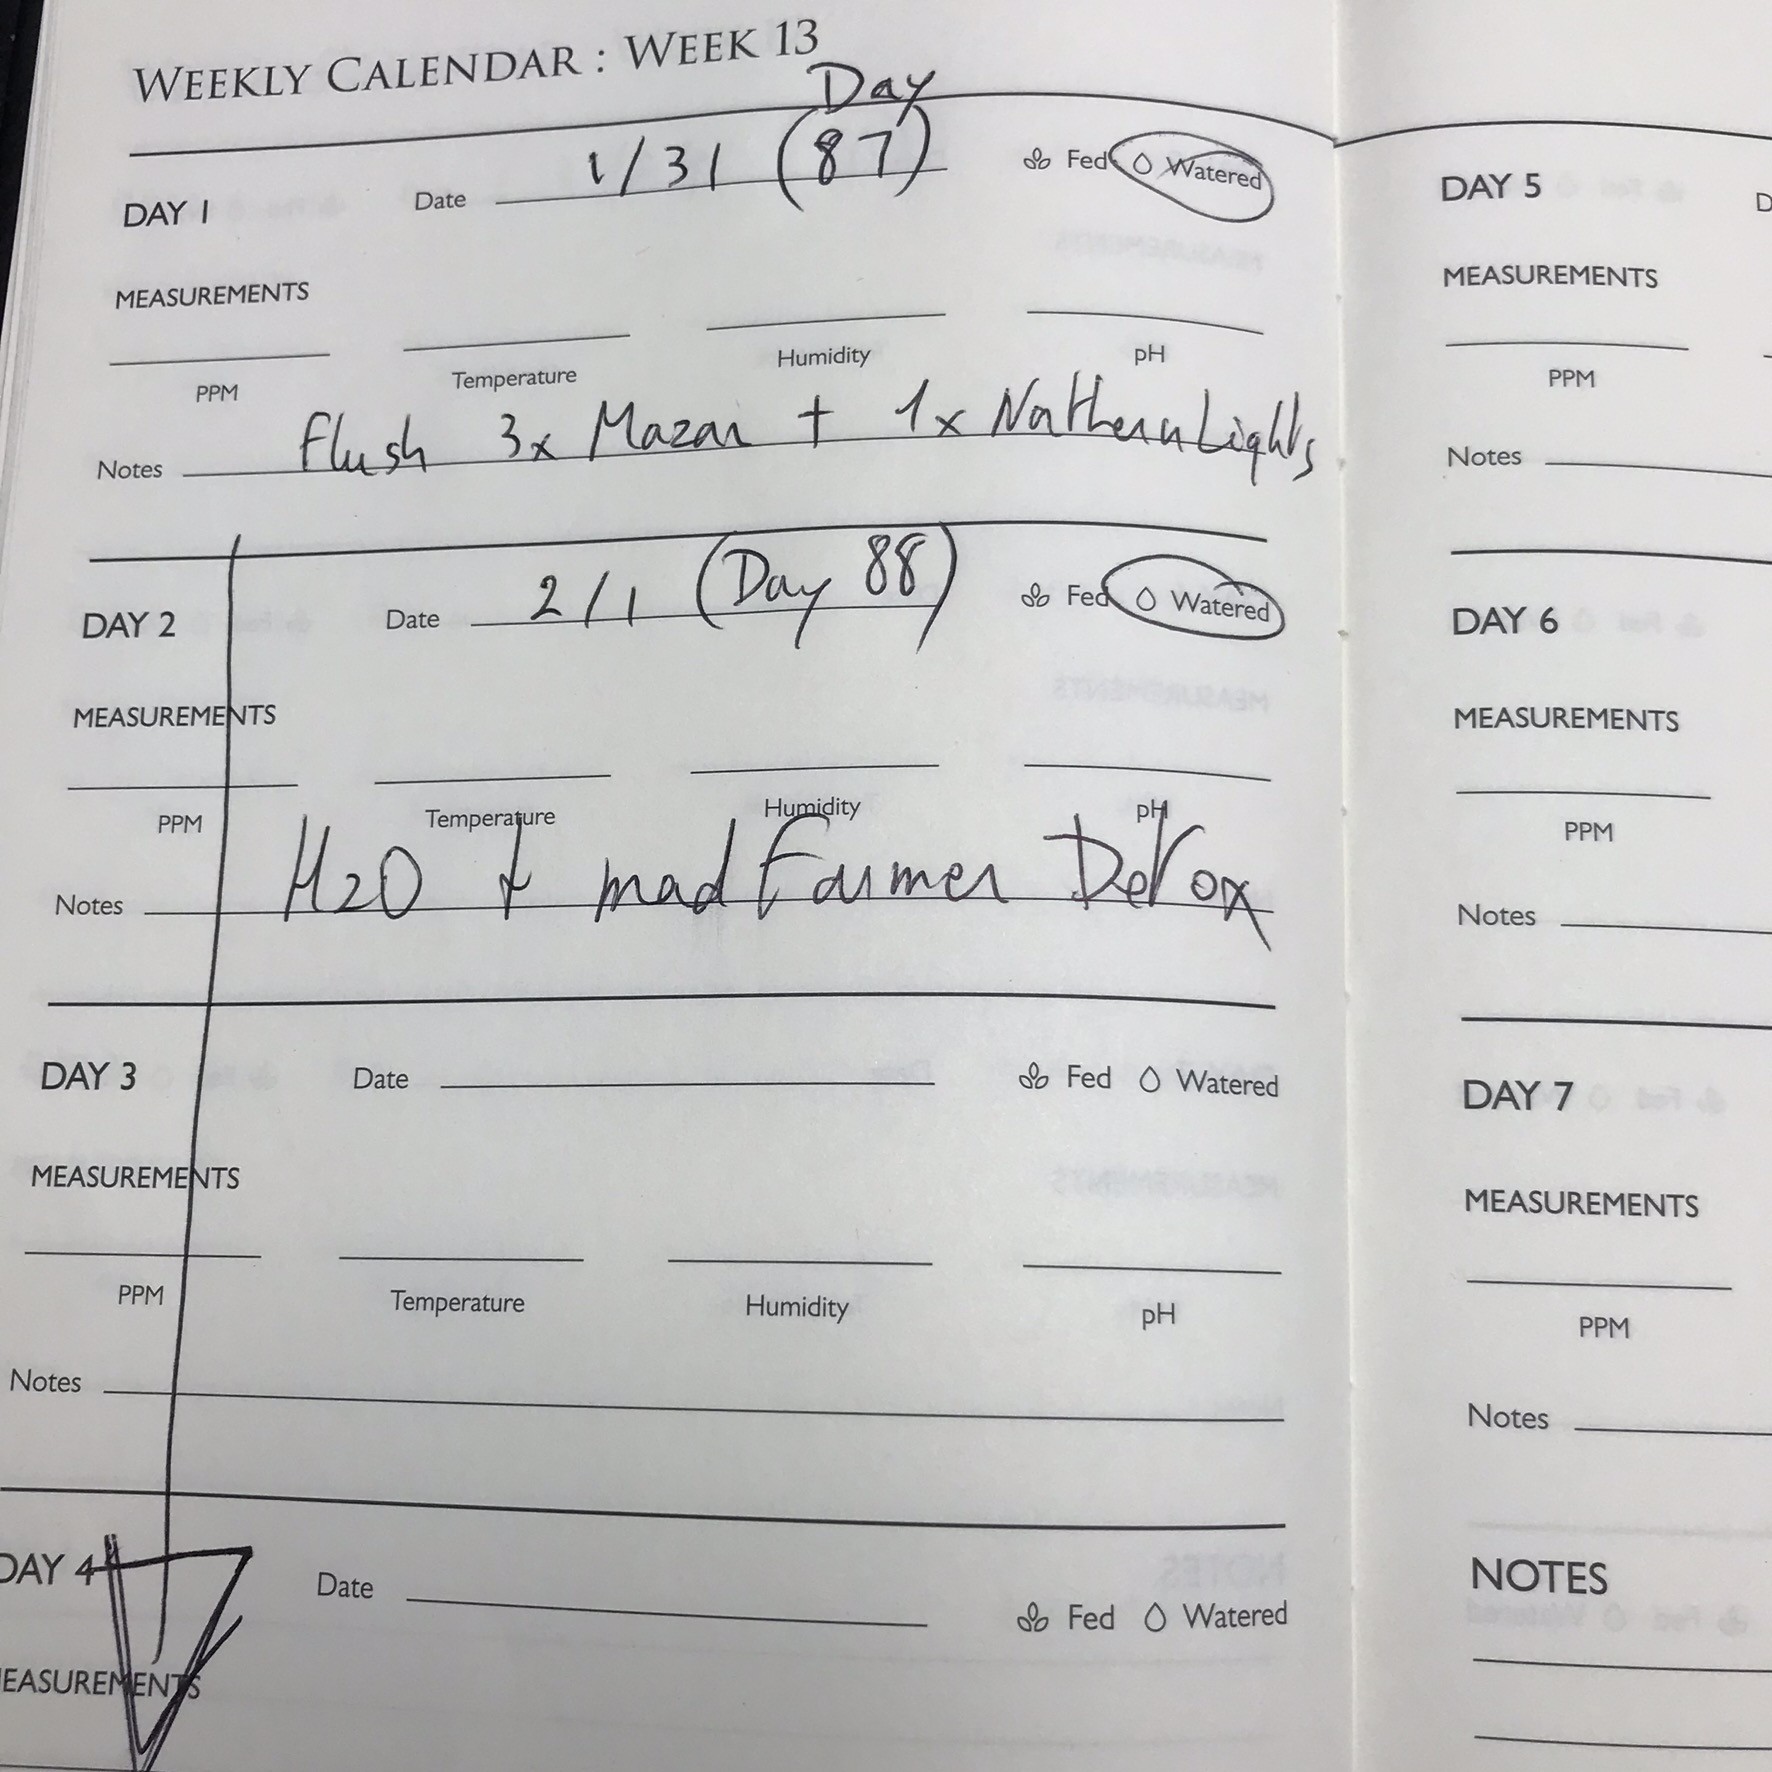 WEEKLY CALENDAR : WEEK 13
Day
DAY 1 Date 1/31 (87) Fed Watered
MEASUREMENTS
PPM Temperature Humidity pH
Notes Flush 3x Mazar + 1x Northern Lights
DAY 2 Date 2/1 (Day 88) Fed Watered
MEASUREMENTS
PPM Temperature Humidity pH
Notes H2O + mad Farmer Detox
DAY 3 Date Fed Watered
MEASUREMENTS
PPM Temperature Humidity pH
Notes
DAY 4 Date Fed Watered
MEASUREMENTS
DAY 5 D
MEASUREMENTS
PPM
Notes
DAY 6
MEASUREMENTS
PPM
Notes
DAY 7
MEASUREMENTS
PPM
Notes
NOTES